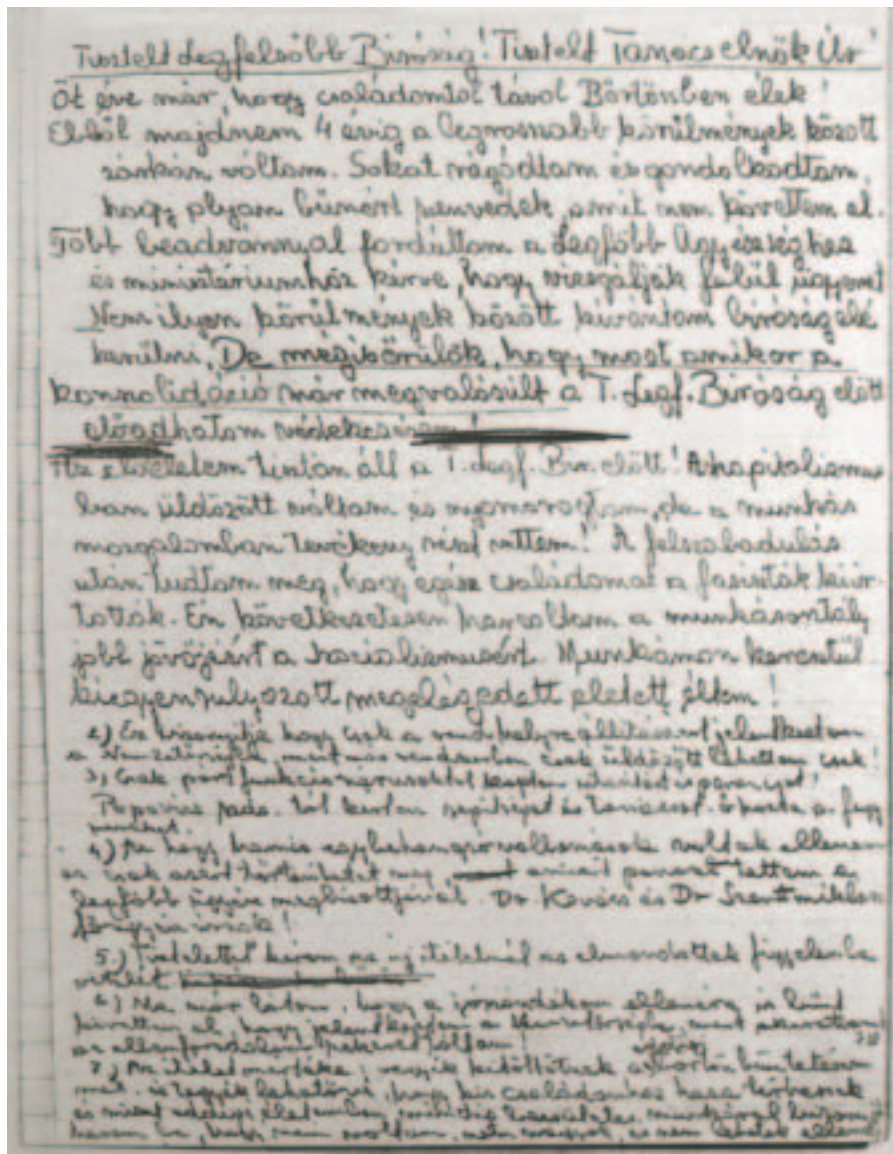 Tisztelt Legfelsőbb Biróság! Tisztelt Tanácselnök Úr!
Öt éve már, hogy családomtol távol Börtönben élek!
Ebből majdnem 4 évig a legrosszabb körülmények között
voltam. Sokat rágodtam és gondolkodtam,
hogy olyan bünért szenvedek, amit nem követtem el.
Több beadvánnyal fordultam a Legfőbb Ügyészséghez
és ministériumhoz kérve, hogy vizsgálják felül ügyemet
Nem ilyen körülmények között kivántam biróság elé
kerülni. De mégis örülök, hogy most amikor a
konszolidáció már megvalósult a T. Legf. Biróság előtt
előadhatom védekezésem!
Az életem tisztán áll a T. Legf. Bir. előtt! A kapitalizmus
ban üldözött voltam és nyomorogtam, de a munkás
mozgalomban tevékeny részt vettem! A felszabadulás
után tudtam meg, hogy egész családomat a fasiszták kiir-
tották. Én következetesen harcoltam a munkásosztály
jobb jövőjéért a szocializmusért. Munkámon keresztül
kiegyensulyozott megelégedett életett éltem!
2) Ez bizonyitja hogy csak a rend helyreállitásáért jelentkeztem
a Nemzetőrségbe, mert más rendszerben csak üldözött lehettem csak!
3) Csak párt funkcionáriusoktol kaptam utasitást és parancsot!
tól kértem segitséget és tanácsot.
4) Az hogy hamis egybehangzó vallomások ellenem
és csak azért történhetett meg amiért panaszt tettem a
legfőbb ügyész megbizottjánál. Dr Kovács és Dr Szentmiklósi
5.) Tisztelettel kérem az uj itéletnél az elmondottak figyelembe
vételét
6) Ma már látom, hogy a
követtem el, hogy jelentkeztem a Nemzetőrségbe, mert
az ellenforradalmat
7) Az itélet mértéke; börtön büntetésem
és tegyék lehetővé, hogy kis családomhoz haza térhessek
és mint eddigi életemben, munkával
be, hogy nem voltam, nem vagyok, és nem leszek